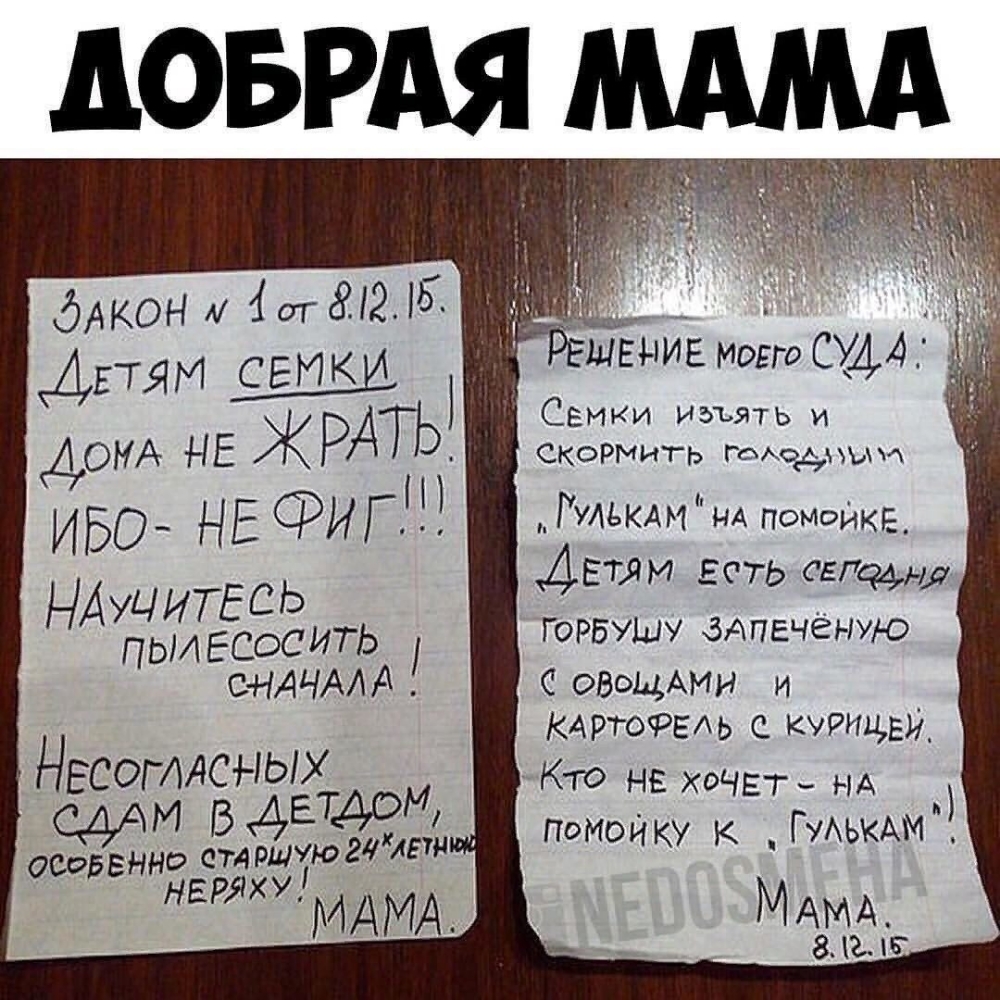 ДОБРАЯ МАМА
ЗАКОН N 1 от 8.12.15.
ДЕТЯМ СЕМКИ
ДОМА НЕ ЖРАТЬ!
ИБО - НЕ ФИГ!!!
НАУЧИТЕСЬ
ПЫЛЕСОСИТЬ
СНАЧАЛА!
НЕСОГЛАСНЫХ
СДАМ В ДЕТДОМ,
ОСОБЕННО СТАРШУЮ 24х ЛЕТНЮЮ
НЕРЯХУ!
МАМА.
РЕШЕНИЕ МОЕГО СУДА:
СЕМКИ ИЗЪЯТЬ И
СКОРМИТЬ ГОЛОДНЫМ
„ГУЛЬКАМ" НА ПОМОЙКЕ.
ДЕТЯМ ЕСТЬ СЕГОДНЯ
ГОРБУШУ ЗАПЕЧЁНУЮ
С ОВОЩАМИ И
КАРТОФЕЛЬ С КУРИЦЕЙ.
КТО НЕ ХОЧЕТ - НА
ПОМОЙКУ К „ГУЛЬКАМ"!
МАМА.
8.12.15
NEDOSMEHA